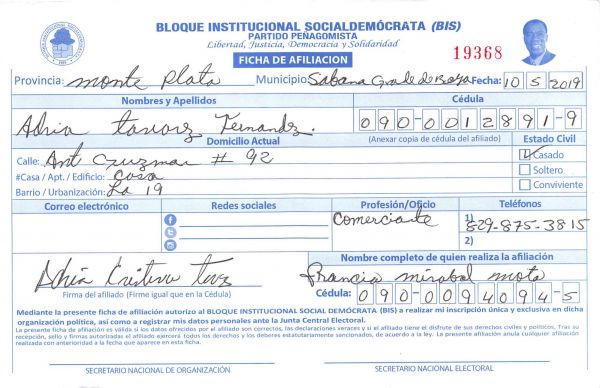 BLOQUE INSTITUCIONAL SOCIALDEMÓCRATA (BIS)
PARTIDO PEÑAGOMISTA
Libertad, Justicia, Democracia y Solidaridad
FICHA DE AFILIACION
19368
Provincia: Monte Plata Municipio: Sabana Grande de Boya Fecha: 10 5 2019
Nombres y Apellidos Cédula
Adria Tavarez Fernandez. 090-0012891-9
Domicilio Actual (Anexar copia de cédula del afiliado) Estado Civil
Calle: Ant Guzman # 92 Casado
#Casa / Apt. / Edificio: Casa Soltero
Barrio / Urbanización: La 19 Conviviente
Correo electrónico Redes sociales Profesión/Oficio Teléfonos
Comerciante 1) 829-875-3815
2)
Nombre completo de quien realiza la afiliación
Adria Cristina Francia mirabal mota
Firma del afiliado (Firme igual que en la Cédula) Cédula: 090-0094094-5
Mediante la presente ficha de afiliación autorizo al BLOQUE INSTITUCIONAL SOCIAL DEMÓCRATA (BIS) a realizar mi inscripción única y exclusiva en dicha
organización política, así como a registrar mis datos personales ante la Junta Central Electoral.
La presente ficha de afiliación es válida si los datos ofrecidos por el afiliado son correctos, las declaraciones veraces y si el afiliado tiene el disfrute de sus derechos civiles y políticos. Tras su
recepción, sello y firmas autorizadas el afiliado ejercerá todos los derechos y los deberes estatutariamente sancionados, de acuerdo a la ley. La presente afiliación anula cualquier afiliación
realizada con anterioridad a la fecha que aparece en esta ficha.
SECRETARIO NACIONAL DE ORGANIZACIÓN SECRETARIO NACIONAL ELECTORAL